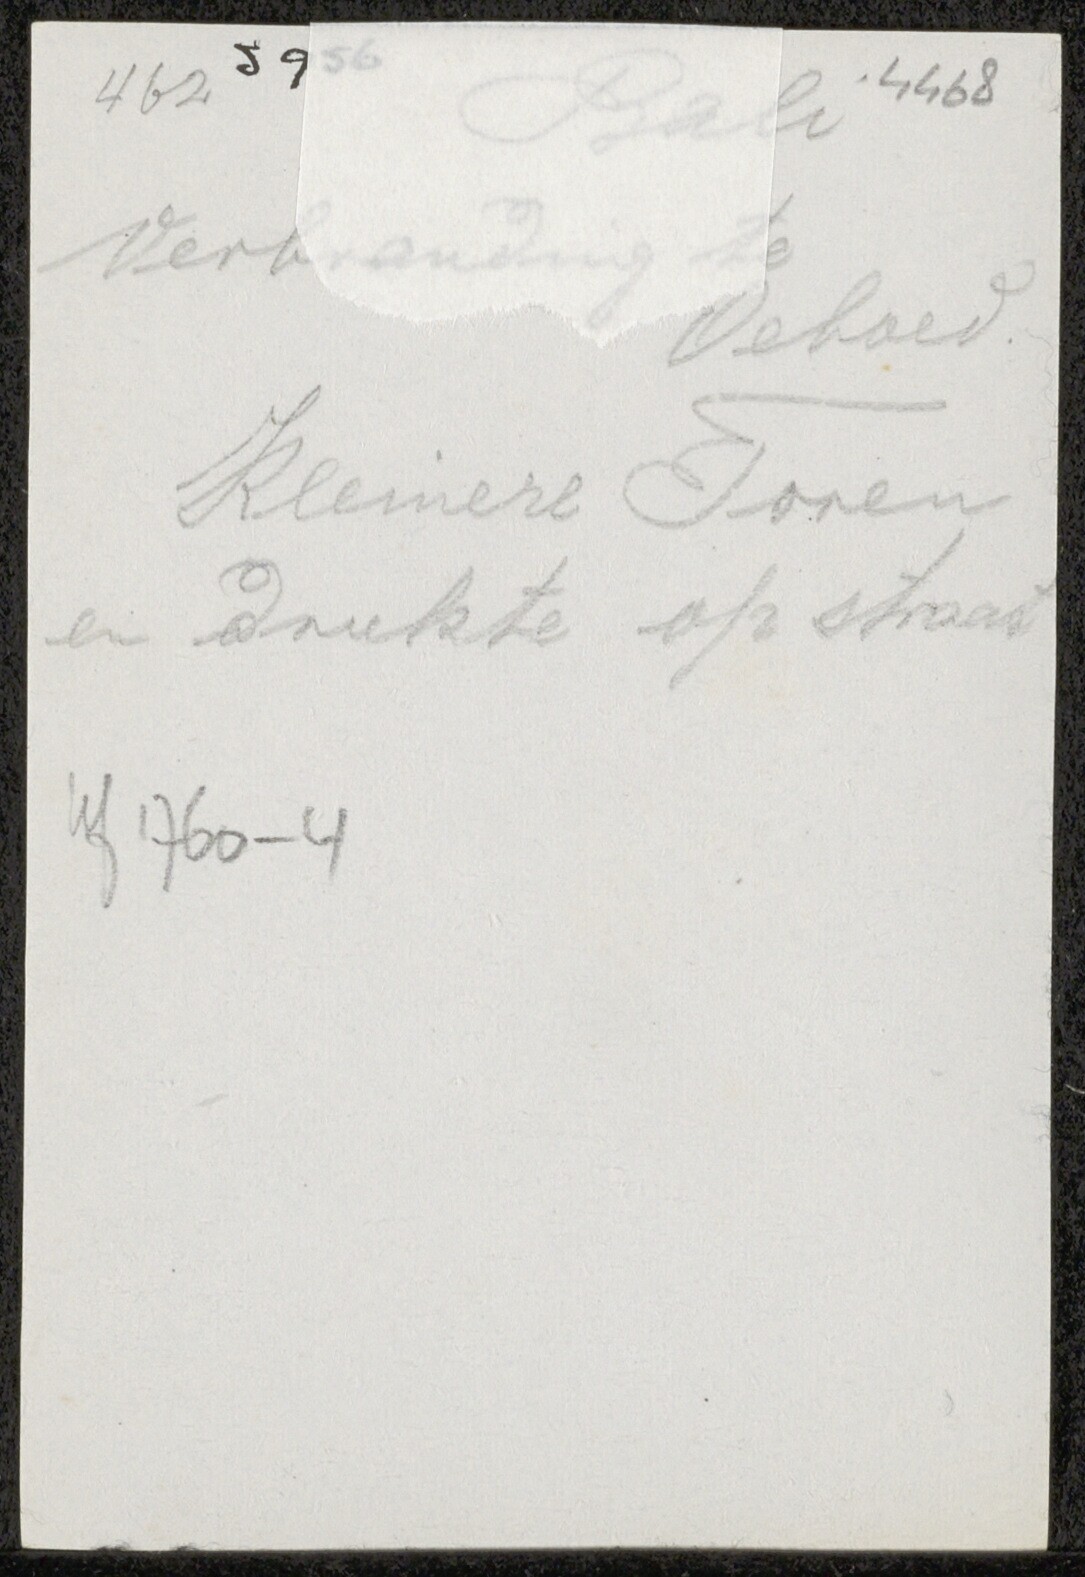 462 5956 Bali 4468
Verbranding te
Oeboed.
Kleinere Toren
en drukte op straat
1760-4